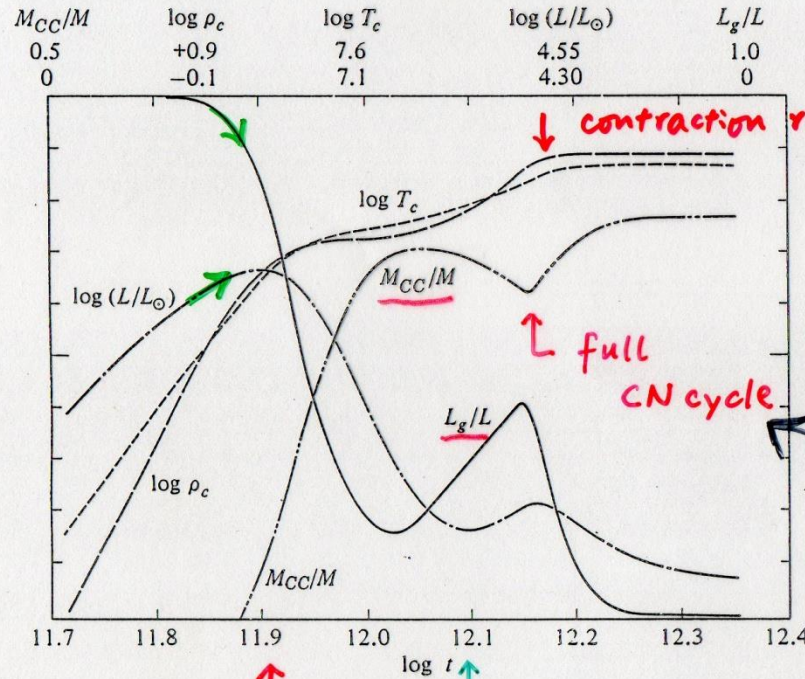 M_CC/M log ρ_c log T_c log (L/L_⊙) L_g/L
0.5 +0.9 7.6 4.55 1.0
0 −0.1 7.1 4.30 0
contraction
log T_c
M_CC/M
log (L/L_⊙)
full
CN cycle
L_g/L
log ρ_c
M_CC/M
11.7 11.8 11.9 12.0 12.1 12.2 12.3 12.4
log t